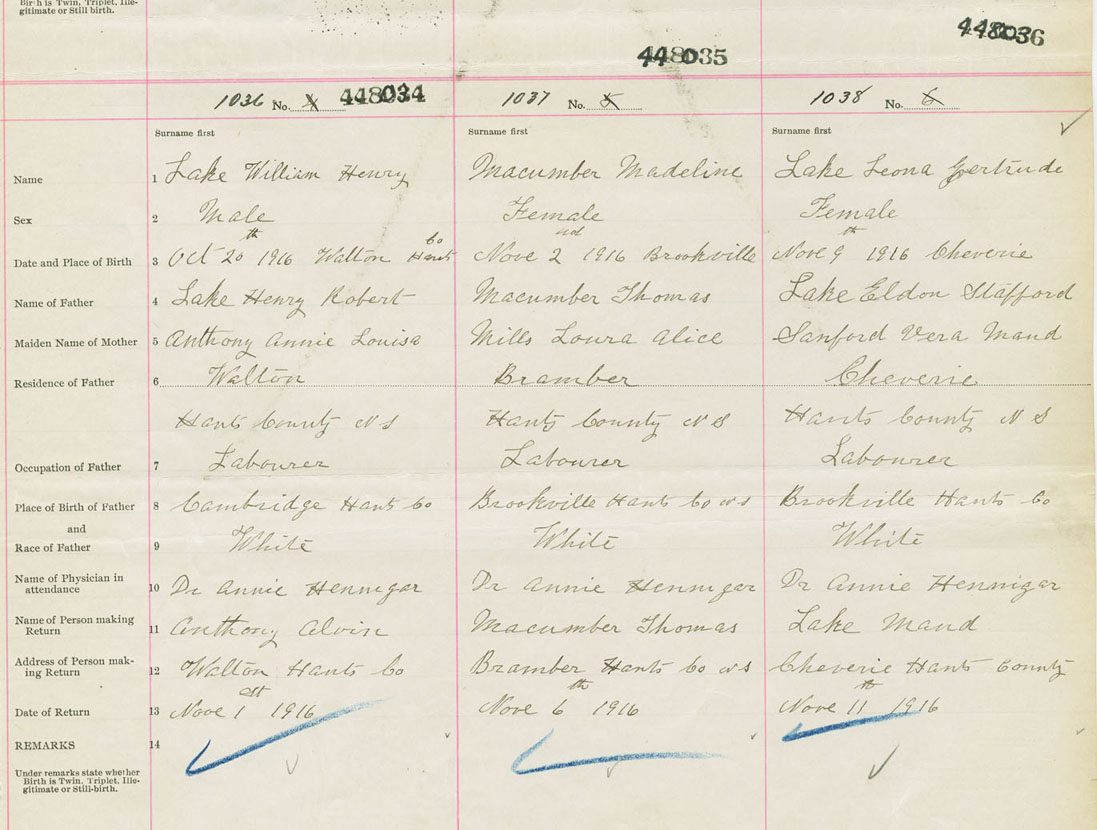 Birth is Twin, Triplet, Ille-
gitimate or Still birth.
448035
448036
1036 No. 4 448034
1037 No. 5
1038 No. 6
Surname first
Surname first
Surname first
Name 1 Lake William Henry Macumber Madeline Lake Leona Gertrude
Sex 2 Male Female Female
Date and Place of Birth 3 Oct 20th 1916 Walton Hants Co Nove 2nd 1916 Brookville Nove 9th 1916 Cheverie
Name of Father 4 Lake Henry Robert Macumber Thomas Lake Eldon Stafford
Maiden Name of Mother 5 Anthony Annie Louisa Mills Loura Alice Sanford Vera Maud
Residence of Father 6 Walton Bramber Cheverie
Hants County N S Hants County N S Hants County N S
Occupation of Father 7 Labourer Labourer Labourer
Place of Birth of Father 8 Cambridge Hants Co Brookville Hants Co N S Brookville Hants Co
and
Race of Father 9 White White White
Name of Physician in
attendance 10 Dr Annie Hennigar Dr Annie Hennigar Dr Annie Hennigar
Name of Person making
Return 11 Anthony Alvin Macumber Thomas Lake Maud
Address of Person mak-
ing Return 12 Walton Hants Co Bramber Hants Co N S Cheverie Hants County
Date of Return 13 Nove 1st 1916 Nove 6th 1916 Nove 11th 1916
REMARKS 14
Under remarks state whether
Birth is Twin, Triplet, Ille-
gitimate or Still-birth.